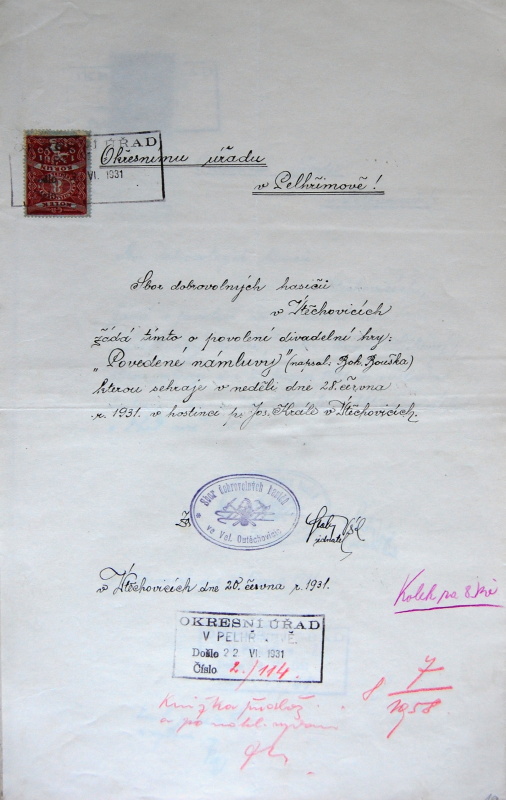 ÚŘAD
VI. 1931
Okresnímu úřadu
v Pelhřimově!
Sbor dobrovolných hasičů
v Útěchovicích
žádá tímto o povolení divadelní hry:
„Povedené námluvy" (napsal: Boh. Bouška)
kterou sehraje v neděli dne 28. června
r. 1931. v hostinci p. Jos. Krále v Útěchovicích.
Sbor dobrovolných hasičů
ve Vel. Outěchovicích
jednatel
v Útěchovicích dne 20. června r. 1931.
Kolek za 8 Kč
OKRESNÍ ÚŘAD
V PELHŘIMOVĚ
Došlo 22 VI. 1931
Číslo 2./114.
Knížka
8 7
1958.